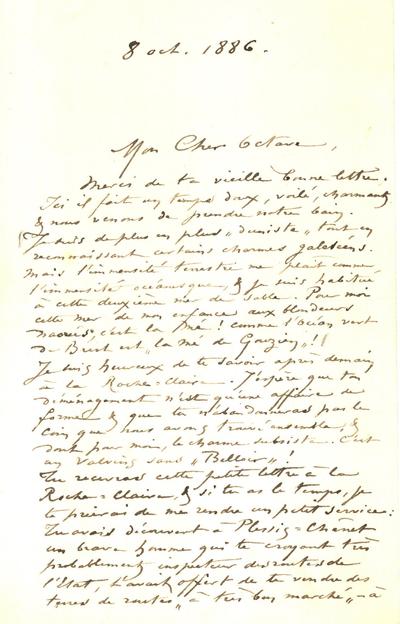 8 oct. 1886.
Mon Cher Octave,
Merci de ta vieille bonne lettre.
Ici il fait un temps doux, voilé, charmant,
& nous venons de prendre notre bain.
Je suis de plus en plus "duniste" tout en
reconnaissant certains charmes galciens.
Mais l'immensité terrestre me plaît comme
l'immensité océanesque, & je suis habitué
à cette deuxième mer de sable. Pour moi
cette mer de mon enfance aux blondeurs
nacrées, c'est la Mé! comme l'océan vert
de Brest est "la mé de Gouzien"!
Je suis heureux de te savoir après demain
à la Roche-Claire. J'espère que ton
déménagement n'est qu'une affaire de
forme & que tu n'abandonneras pas le
coin que nous avons trouvé ensemble, &
dont pour moi, le charme subsiste. C'est
un Valvins sans "Bellair"!
Tu recevras cette petite lettre à la
Roche-Claire, & si tu as le temps, je
te prierais de me rendre un petit service:
Tu avais découvert à Plessis-Chênet
un brave homme qui te croyant très
probablement inspecteur des routes de
l'Etat, t'avait offert de te vendre des
terres de routes "à très bon marché" - à